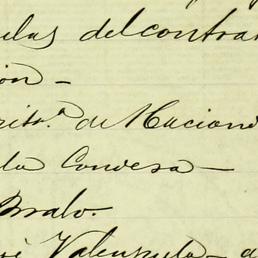 ulas del contra
ion –
crito.ª de Hacien
la Condesa –
Malo.
sé Valenzuela – a